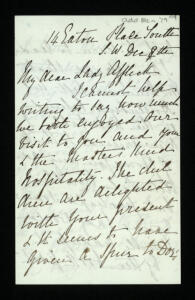 14 Eaton Place South
S.W. Dec 8th
My dear Lady Affleck
I cannot help
writing to say how much
we both enjoyed our
visit to you and your
& the Master's kind
hospitality. The chil
dren are delighted
with your present
& it seems to have
given a spur to